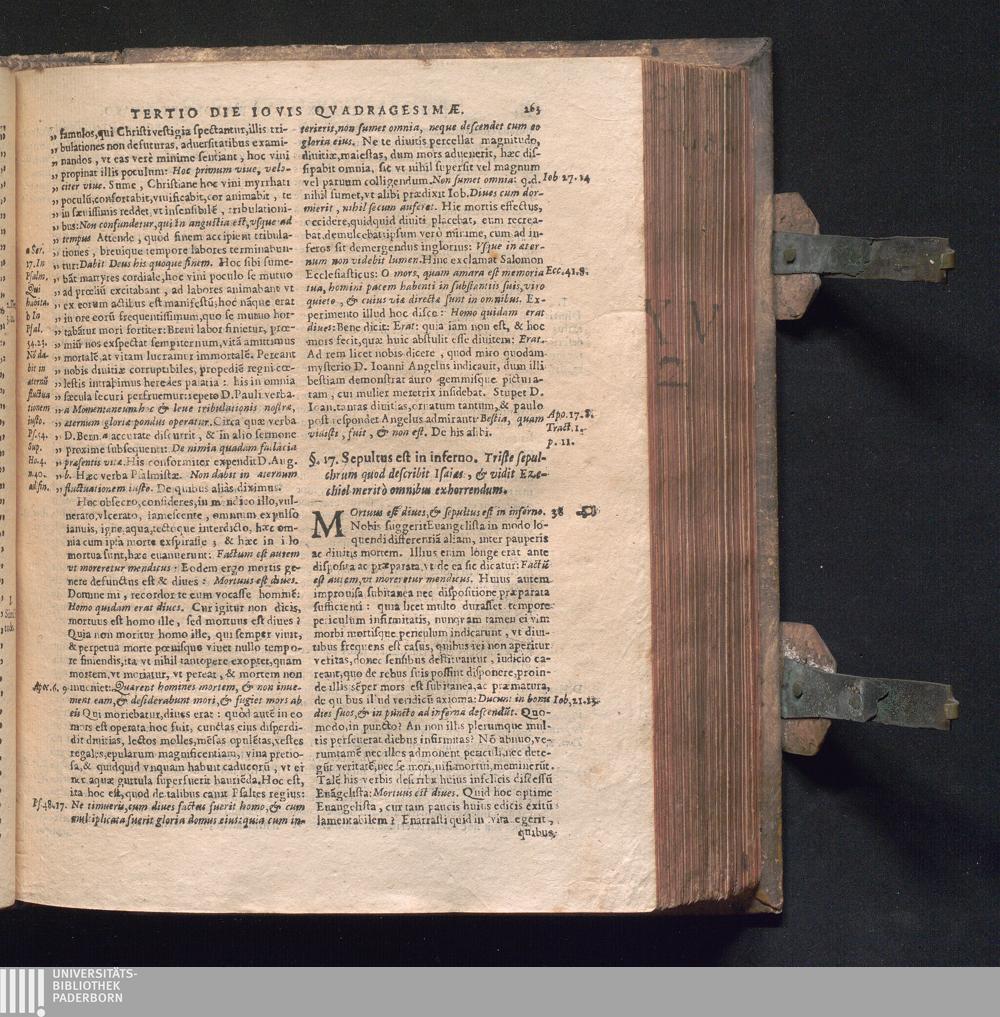 TERTIO DIE IOVIS QVADRAGESIMÆ.
263
„ famulos, qui Christi vestigia spectantur, illis tri-
„ bulationes non desuturas, aduersitatibus exami-
„ nandos, vt eas verè minime sentiant, hoc vini
„ propinat illis poculum: Hoc primum viue, velo-
„ citer viue. Sume, Christiane hoc vini myrrhati
„ poculũ, confortabit, viuificabit, cor animabit, te
„ in sævissimis reddet, vt insensibilẽ, tribulationi-
„ bus: Non confundetur, qui in angustia est, vsque ad
„ tempus Attende, quòd finem accipient tribula-
„ tiones, breuique tempore labores terminabun-
„ tur: Dabit Deus his quoque finem. Hoc sibi sume-
„ bãt martyres cordiale, hoc vini poculo se mutuo
„ ad prœliũ excitabant, ad labores animabant vt
„ ex eorum actibus est manifestũ; hoc nãque erat
„ in ore eorũ frequentissimum, quo se mutuo hor-
„ tabãtur mori fortiter: Breui labor finietur, præ-
„ miũ nos exspectat sempiternum, vitã amittimus
„ mortalẽ, at vitam lucramur immortalẽ. Pereant
„ nobis diuitiæ corruptibiles, propediẽ regni cœ-
„ lestis intrabimus heredes palatia: his in omnia
„ sæcula securi perfruemur: repeto D. Pauli verba.
„ a Momentaneum hoc & leue tribulationis nostræ,
„ æternum gloriæ pondus operatur. Circa quæ verba
„ D. Bern. a accurate discurrit, & in alio sermone
„ proxime subsequenti: De nimia quadam fallacia
„ præsentis vitæ. His conformiter expendit D. Aug.
„ b. Hæc verba Psalmistæ. Non dabit in æternum
„ fluctuationem iusto. De quibus aliàs diximus.
Hoc obsecro, consideres, in mendico illo, vul-
nerato, vlcerato, famescente, omnium expulso
ianuis, igne, aqua, tectoque interdicto, hæc om-
nia cum ipsa morte exspirasse; & hæc in illo
mortua sunt, hæc euanuerunt: Factum est autem
vt moreretur mendicus: Eodem ergo mortis ge-
nere defunctus est & diues: Mortuus est diues.
Domine mi, recordor te eum vocasse hominẽ:
Homo quidam erat diues. Cur igitur non dicis,
mortuus est homo ille, sed mortuus est diues?
Quia non moritur homo ille, qui semper viuit,
& perpetua morte pœnisque viuet nullo tempo-
re finiendis, ita vt nihil tantopere exoptet, quam
mortem, vt moriatur, vt pereat, & mortem non
inueniet: Quærent homines mortem, & non inue-
nient eam, & desiderabunt mori, & fugiet mors ab
eis Qui moriebatur, diues erat: quod autẽ in eo
mors est operata, hoc fuit, cunctas eius disperdi-
dit diuitias, lectos molles, mẽsas opulẽtas, vestes
regales, epularum magnificentiam, vina pretio-
sa, & quidquid vnquam habuit caducorũ, vt ei
nec aquæ guttula superfuerit hauriẽda. Hoc est,
ita hoc est, quod de talibus canit Psaltes regius:
Ne timueris, cum diues factus fuerit homo, & cum
multiplicata fuerit gloria domus eius: quia cum in-
a Ser.
17. In
Psalm.
Qui
habita.
b In
Psal.
54.23.
Nõ da-
bit in
æternũ
fluctua
tionem
iusto.
Ps. 14.
Sup.
Ho. 4.
n. 40.
ad fin.
Apoc. 6. 9
Ps. 48. 17.
terierit, non sumet omnia, neque descendet cum eo
gloria eius. Ne te diuitis percellat magnitudo,
diuitiæ, maiestas, dum mors aduenerit, hæc dis-
sipabit omnia, sic vt nihil supersit vel magnum
vel paruum colligendum. Non sumet omnia: q.d.
nihil sumet, vt alibi prædixit Iob. Diues cum dor-
mierit, nihil secum auferet. Hic mortis effectus,
occidere, quidquid diuiti placebat, eum recrea-
bat, demulcebat: ipsum verò minime, cum ad in-
feros sit demergendus inglorius: Vsque in æter-
num non videbit lumen. Hinc exclamat Salomon
Ecclesiasticus: O mors, quam amara est memoria
tua, homini pacem habenti in substantiis suis, viro
quieto, & cuius viæ directæ sunt in omnibus. Ex-
perimento illud hoc disce: Homo quidam erat
diues: Bene dicit: Erat: quia iam non est, & hoc
mors fecit, quæ huic abstulit esse diuitem: Erat.
Ad rem licet nobis dicere, quod miro quodam
mysterio D. Ioanni Angelus indicauit, dum illi
bestiam demonstrat auro gemmisque pictura-
tam, cui mulier meretrix insidebat. Stupet D.
Ioan. tantas diuitias, ornatum tantum, & paulo
post respondet Angelus admiranti: Bestia, quam
vidisti, fuit, & non est. De his alibi.
Iob 27. 14
Ecc. 41. 8.
Apo. 17. 8.
Tract. 1.
p. 11.
§. 17. Sepultus est in inferno. Triste sepul-
chrum quod describit Isaias, & vidit Eze-
chiel meritò omnibus exhorrendum.
MOrtuus est diues, & sepultus est in inferno. 38
Nobis suggerit Euangelista in modo lo-
quendi differentiã aliam, inter pauperis
ac diuitis mortem. Illius enim longe erat ante
disposita ac præparata, vt de ea sic dicatur: Factũ
est autem, vt moreretur mendicus. Huius autem
improuisa subitanea nec dispositione præparata
sufficienti: quia licet multo durasset tempore
periculum infirmitatis, nunquam tamen ei vim
morbi mortisque periculum indicarunt, vt diui-
tibus frequens est casus, quibus rei non aperitur
veritas, donec sensibus destituantur, iudicio ca-
reant, quo de rebus suis possint disponere, proin-
de illis sẽper mors est subitanea, ac præmatura,
de quibus illud veridicũ axioma: Ducunt in bonis
dies suos, & in puncto ad inferna descendũt. Quo-
modo, in puncto? An non illis plerumque mul-
tis perseuerat diebus infirmitas? Nõ abnuo, ve-
rumtamẽ nec illos admonent periculi, nec dete-
gũt veritatẽ, nec se mori, nisi mortui, meminerũt.
Talẽ his verbis describit huius infelicis discessũ
Euãgelista: Mortuus est diues. Quid hoc optime
Euangelista, cur tam paucis huius edicis exitũ
lamentabilem? Enarrasti quid in vita egerit,
quibus
Iob, 21. 13.
UNIVERSITÄTS-
BIBLIOTHEK
PADERBORN